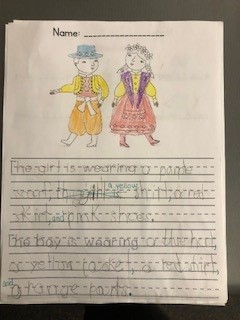 Name:
The girl is wearing a purple
a yellow
shirt, a red
skirt, and pink shoes.
The boy is wearing a blue hat,
a yellow jacket, a red shirt,
and orange pants.